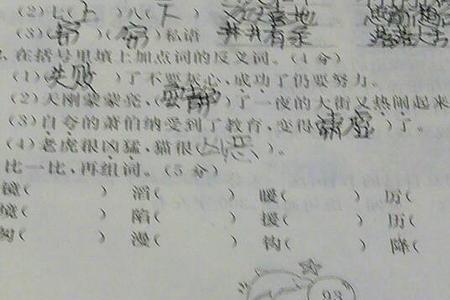 (2)七(上)八(下)
(3)(窃)(窃)私语 井井有条
在括号里填上加点词的反义词。(4分)
(1)(失败)了不要灰心,成功了仍要努力。
(2)天刚蒙蒙亮,( )了一夜的大街又热闹起来
(3)自夸的萧伯纳受到了教育,变得(谦虚)了。
(4)老虎很凶猛,猫很( )。
比一比,再组词。(5分)
镜( ) 滔( ) 暖( ) 厉( )
境( ) 陷( ) 援( ) 历( )
匆( ) 漫( ) 钩( ) 降( )
93